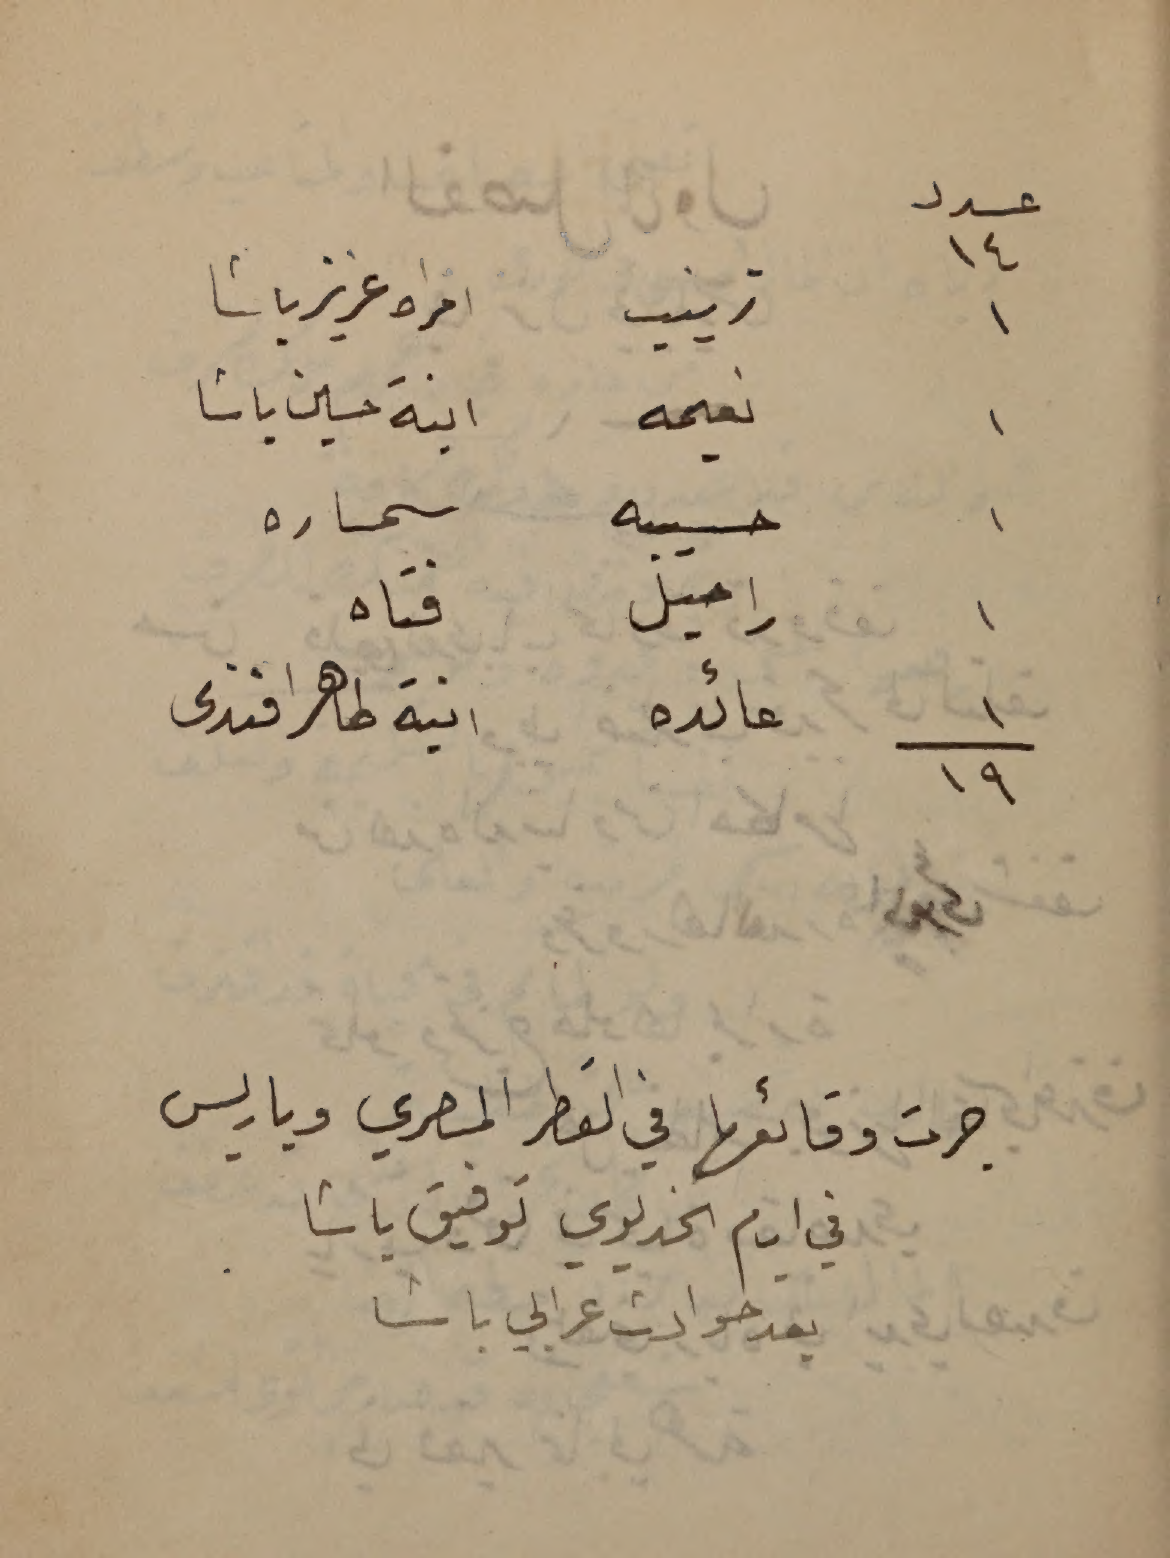 عدد
١٤
١ زينب امراه عزيز باشا
١ نعيمه ابنة حسين باشا
١ حسيبه سمساره
١ راحيل فتاه
١ عائده ابنة طاهر افندى
١٩
جرت وقائعها في القطر المصري وباريس
في ايام الخديوي توفيق باشا
بعد حوادث عرابي باشا